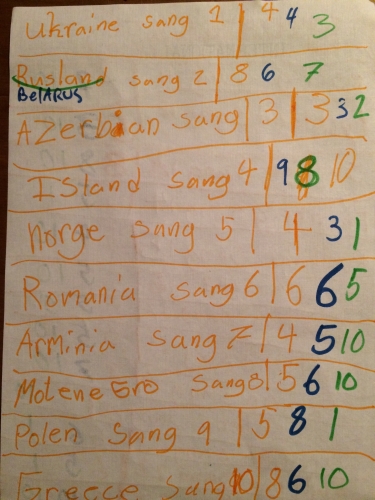 Ukraine sang 1 | 4 4 3
Rusland sang 2 | 8 6 7
BelARUS
AZerbian sang | 3 | 3 3 2
ISland sang 4 | 9 8 10
norge sang 5 | 4 3 1
Romania sang 6 | 6 6 5
Arminia sang 7 | 4 5 10
Motene Gro sang 8 | 5 6 10
Polen sang 9 | 5 8 1
Greece sang 10 | 8 6 10